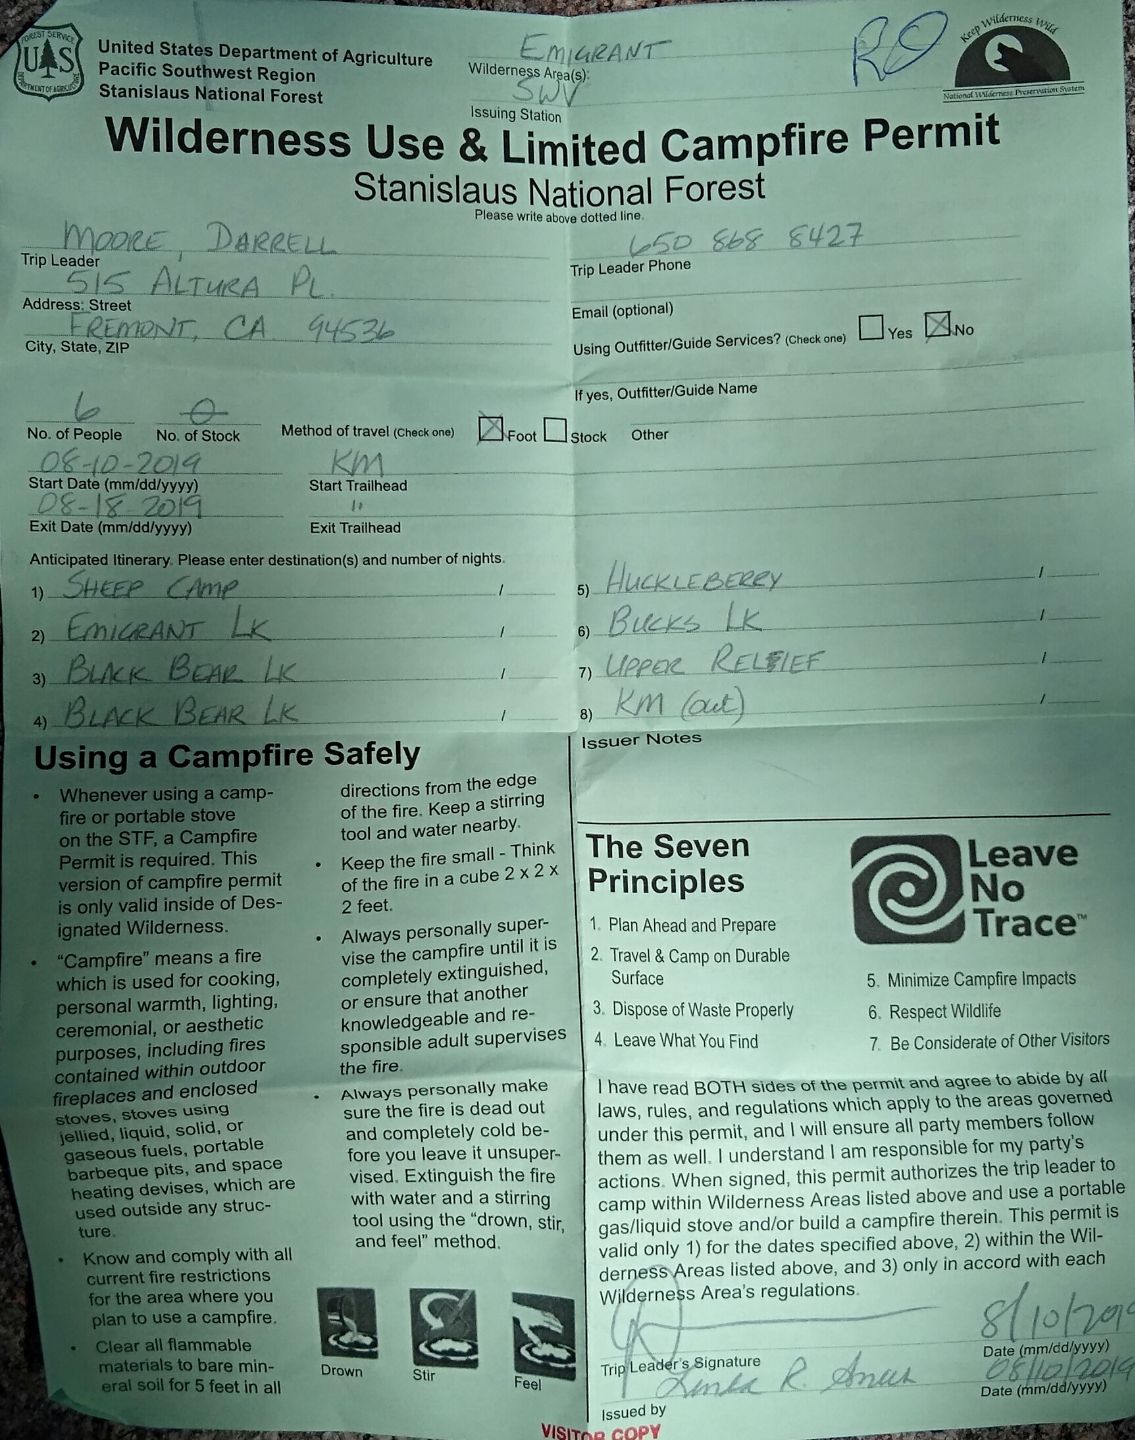 FOREST SERVICE
UAS
DEPARTMENT OF AGRICULTURE
United States Department of Agriculture
Pacific Southwest Region
Stanislaus National Forest
EMIGRANT
Wilderness Area(s):
SWV
Issuing Station
RO
Keep Wilderness Wild
National Wilderness Preservation System
Wilderness Use & Limited Campfire Permit
Stanislaus National Forest
Please write above dotted line.
MOORE, DARRELL
Trip Leader
515 ALTURA PL.
Address: Street
FREMONT, CA 94536
City, State, ZIP
650 868 8427
Trip Leader Phone
Email (optional)
Using Outfitter/Guide Services? (Check one) Yes No
If yes, Outfitter/Guide Name
6 0
No. of People No. of Stock Method of travel (Check one) Foot Stock Other
08-10-2019 KM
Start Date (mm/dd/yyyy) Start Trailhead
08-18-2019 "
Exit Date (mm/dd/yyyy) Exit Trailhead
Anticipated Itinerary. Please enter destination(s) and number of nights.
1) SHEEP CAMP /
2) EMIGRANT LK /
3) BLACK BEAR LK /
4) BLACK BEAR LK /
5) HUCKLEBERRY /
6) BUCKS LK /
7) UPPER RELIEF /
8) KM (out) /
Using a Campfire Safely
• Whenever using a camp-
fire or portable stove
on the STF, a Campfire
Permit is required. This
version of campfire permit
is only valid inside of Des-
ignated Wilderness.
• “Campfire” means a fire
which is used for cooking,
personal warmth, lighting,
ceremonial, or aesthetic
purposes, including fires
contained within outdoor
fireplaces and enclosed
stoves, stoves using
jellied, liquid, solid, or
gaseous fuels, portable
barbeque pits, and space
heating devises, which are
used outside any struc-
ture.
• Know and comply with all
current fire restrictions
for the area where you
plan to use a campfire.
• Clear all flammable
materials to bare min-
eral soil for 5 feet in all
directions from the edge
of the fire. Keep a stirring
tool and water nearby.
• Keep the fire small - Think
of the fire in a cube 2 x 2 x
2 feet.
• Always personally super-
vise the campfire until it is
completely extinguished,
or ensure that another
knowledgeable and re-
sponsible adult supervises
the fire.
• Always personally make
sure the fire is dead out
and completely cold be-
fore you leave it unsuper-
vised. Extinguish the fire
with water and a stirring
tool using the “drown, stir,
and feel” method.
Drown
Stir
Feel
Issuer Notes
The Seven
Principles
Leave
No
Trace™
1. Plan Ahead and Prepare
2. Travel & Camp on Durable
Surface
3. Dispose of Waste Properly
4. Leave What You Find
5. Minimize Campfire Impacts
6. Respect Wildlife
7. Be Considerate of Other Visitors
I have read BOTH sides of the permit and agree to abide by all
laws, rules, and regulations which apply to the areas governed
under this permit, and I will ensure all party members follow
them as well. I understand I am responsible for my party's
actions. When signed, this permit authorizes the trip leader to
camp within Wilderness Areas listed above and use a portable
gas/liquid stove and/or build a campfire therein. This permit is
valid only 1) for the dates specified above, 2) within the Wil-
derness Areas listed above, and 3) only in accord with each
Wilderness Area's regulations.
8/10/2019
Trip Leader's Signature Date (mm/dd/yyyy)
Linda R. 08/10/2019
Issued by Date (mm/dd/yyyy)
VISITOR COPY